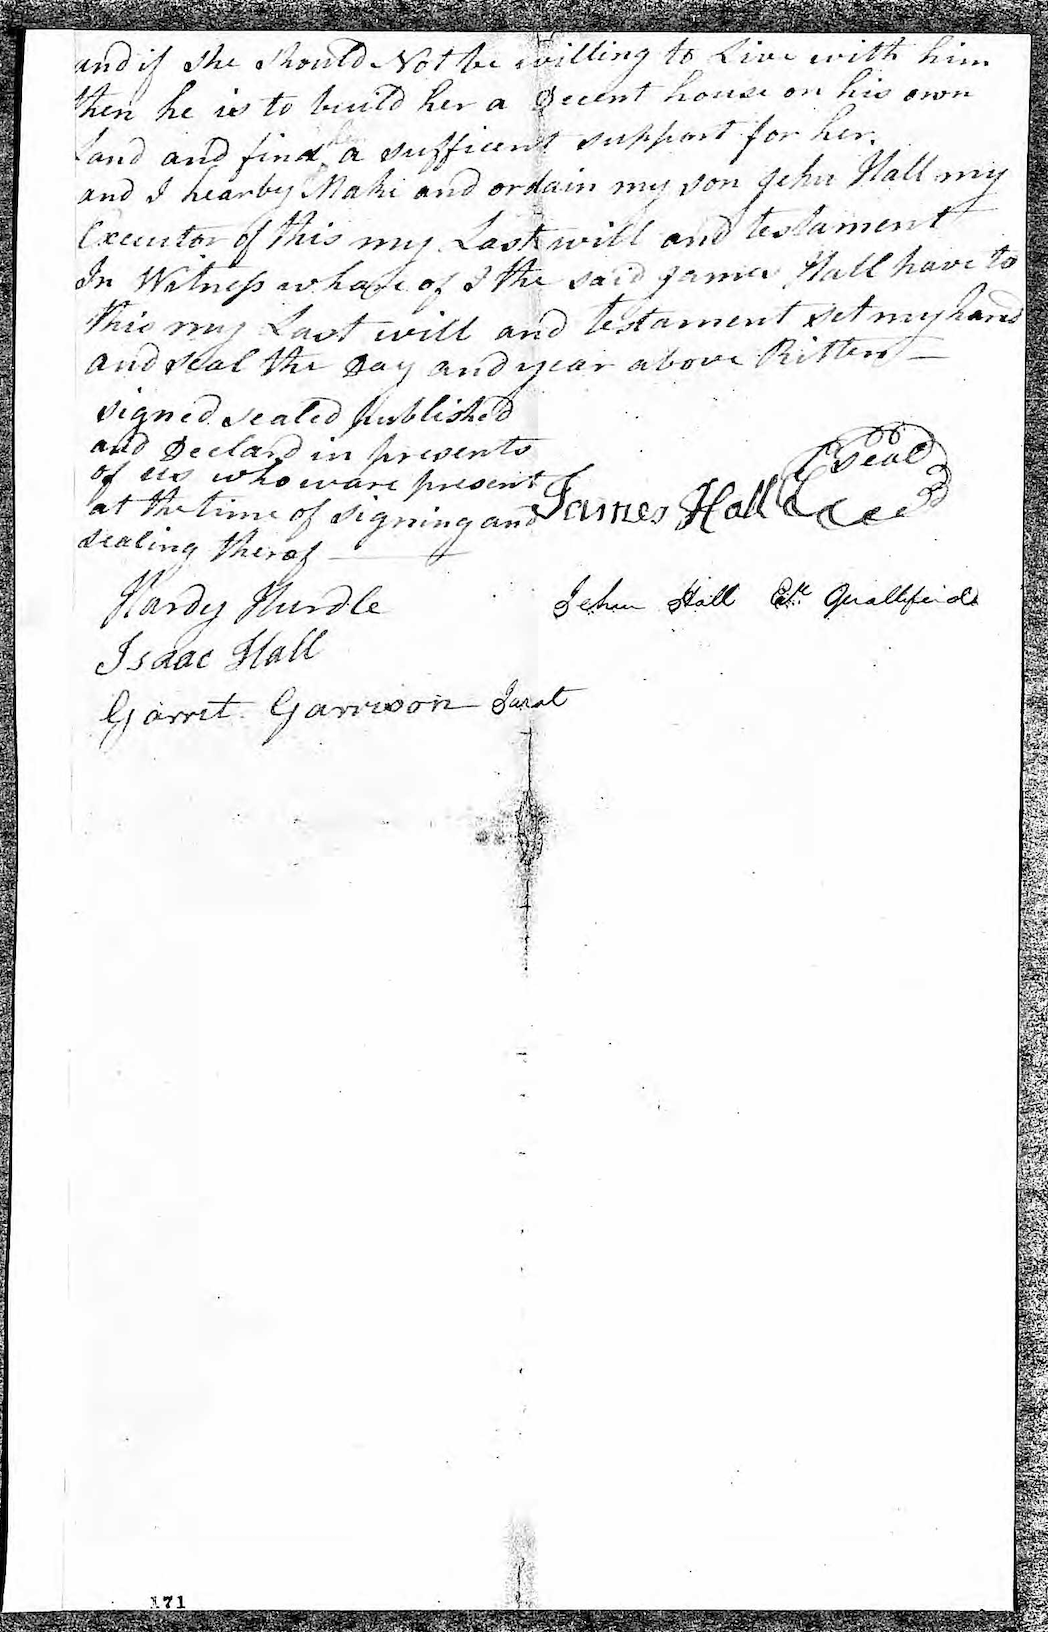 and if she should Not be willing to Live with him
then he is to build her a Decent house on his own
Land and find her a sufficent support for her.
and I hearby Make and ordain my son Jehu Hall my
Executor of this my Last will and testament
In Witness whare of I the said James Hall have to
this my Last will and testament set my hand
and seal the Day and year above Ritten —
signed sealed published
and Declard in presents
of us who ware present
at the time of signing and
sealing therof
James Hall
Seal
Hardy Hurdle
Jehu Hall Exr. Quallifeid
Isaac Hall
Garret Garrison Jurat
171